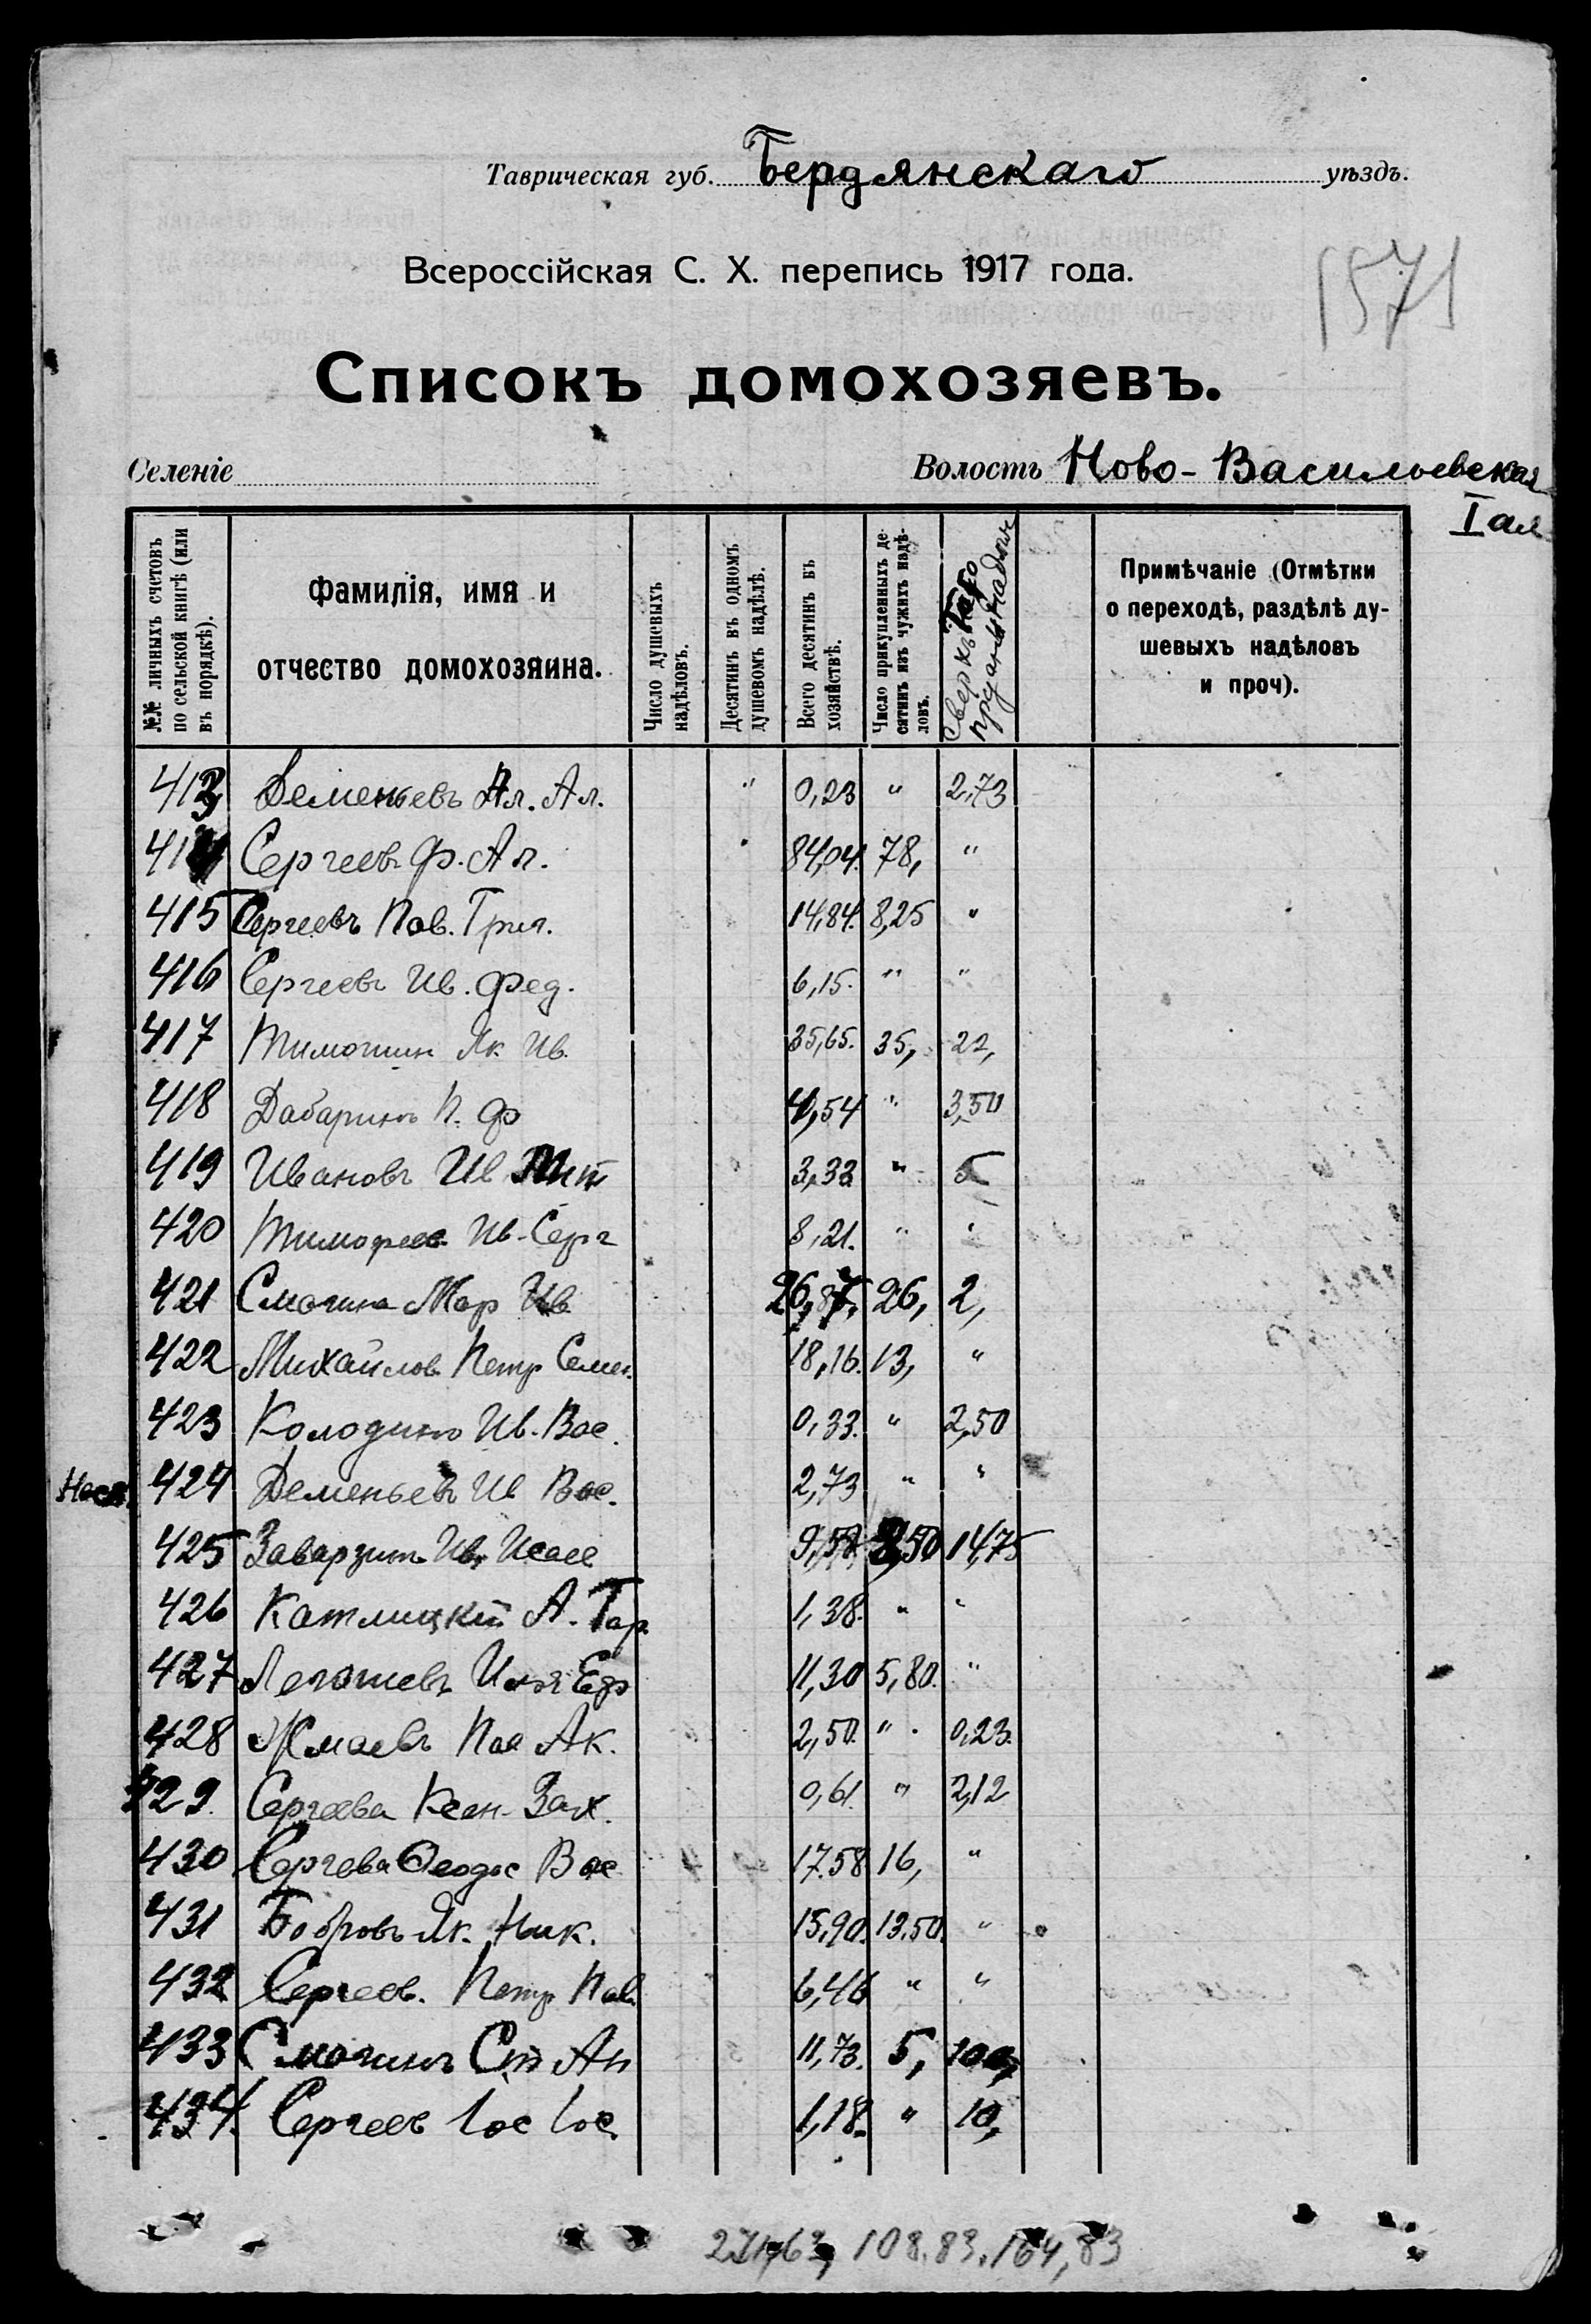 Таврическая губ. Бердянскаго уѣздъ.
Всероссійская С. Х. перепись 1917 года.
1571
Списокъ домохозяевъ.
Селеніе Волость Ново-Васильевская
I ая
№№ личныхъ счетовъ по сельской книгѣ (или въ порядкѣ).
Фамилія, имя и отчество домохозяина.
Число душевыхъ надѣловъ.
Десятинъ въ одномъ душевомъ надѣлѣ.
Всего десятинъ въ хозяйствѣ.
Число прикупленныхъ десятинъ изъ чужихъ надѣловъ.
Сверхъ того
Примѣчаніе (Отмѣтки о переходѣ, раздѣлѣ душевыхъ надѣловъ и проч).
413 Деменьевъ Ал. Ал. " 0,23 " 2,73
414 Сергеев. Ф. Ал. 84,04. 78, "
415 Сергеевъ Пав. Григ. 14,84. 8,25 "
416 Сергеевъ Ив. Фед. 6,15. " "
417 Тимошин Як Ив. 35,65. 35, 22,
418 Дабаринъ П. Ф 4,54 " 3,50
419 Ивановъ Ив 3,33 "
420 Тимофеев Ив. Серг 8,21. " "
421 Смагина Мар Ив 26,87. 26, 2,
422 Михайлов Петр Семен. 18,16. 13, "
423 Колодинъ Ив. Вас. 0,33. " 2,50
424 Деменьевъ Ив Вас. 2,73 " "
425 Заварзинъ Ив. Исае 9,50 8,50 14,75
426 Катлицкій А. Тар. 1,38. " "
427 Илья Еф 11,30 5,80. "
428 Жмаевъ Пав Ак. 2,50. " 0,23.
429. Сергеева Ксен. Зах. 0,61. " 2,12
430 Сергева Ѳеодос Вас 17.58 16, "
431 Бобровъ Як. Ник. 15,90. 13.50. "
432 Сергеев. Петр Пав. 6,46 " "
433 Смагинъ Ст Ан 11,73. 5, 100,
434. Сергеев Іос Іос. 1,18. " 10,
108.83. 164,83